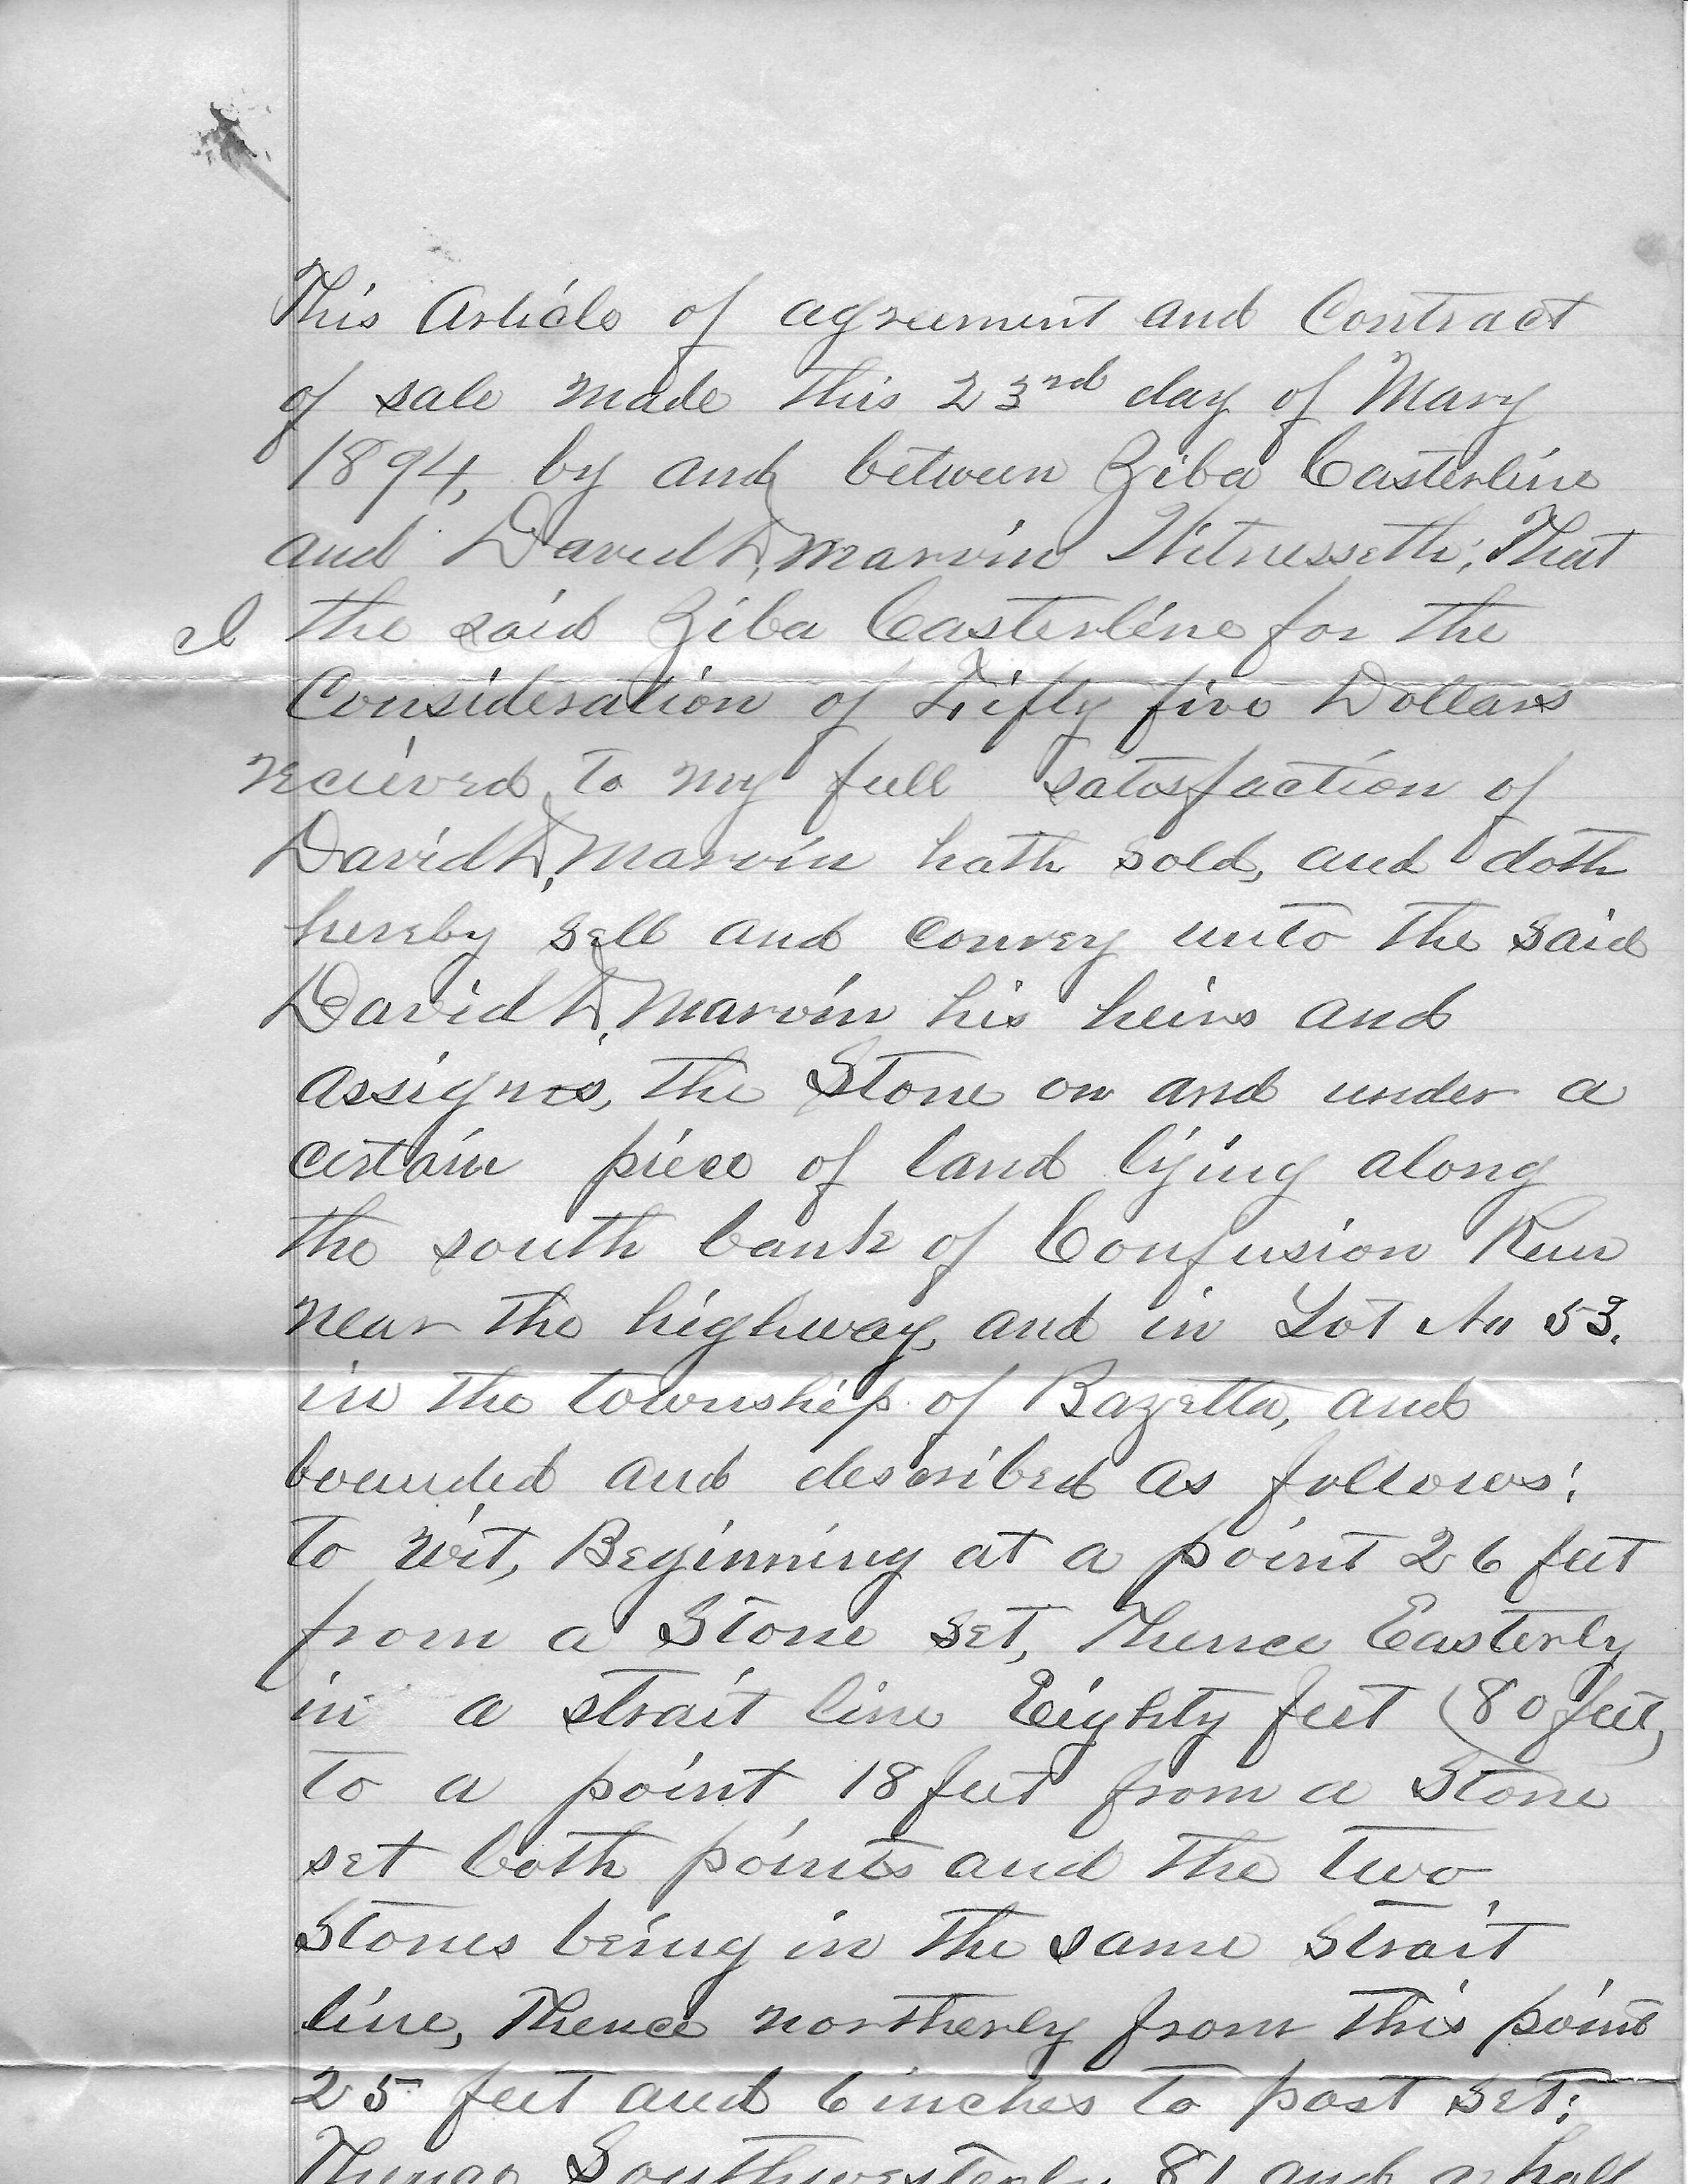 This Article of agreement and Contract
of sale made this 23rd day of Mary
1894, by and between Ziba Casterline
and David D, Marvin Witnesseth; That
I the said Ziba Casterline for the
Consideration of Fifty five Dollars
recieved to my full satisfaction of
David D, Marvin hath sold, and doth
hereby sell and convey unto the said
David D, Marvin his heirs and
assignes, the Stone on and under a
certain piece of land lying along
the south bank of Confusion Run
near the highway, and in Lot No 53.
in the township of Bazetta, and
bounded and described as follows;
to wit, Beginning at a point 26 feet
from a Stone set, Thence Easterly
in a strait line Eighty feet (80 feet,)
to a point 18 feet from a Stone
set both points and the two
Stones being in the same Strait
line, Thence northerly from this point
25 feet and 6 inches to post set;
Thence Southwesterly 81 and a half